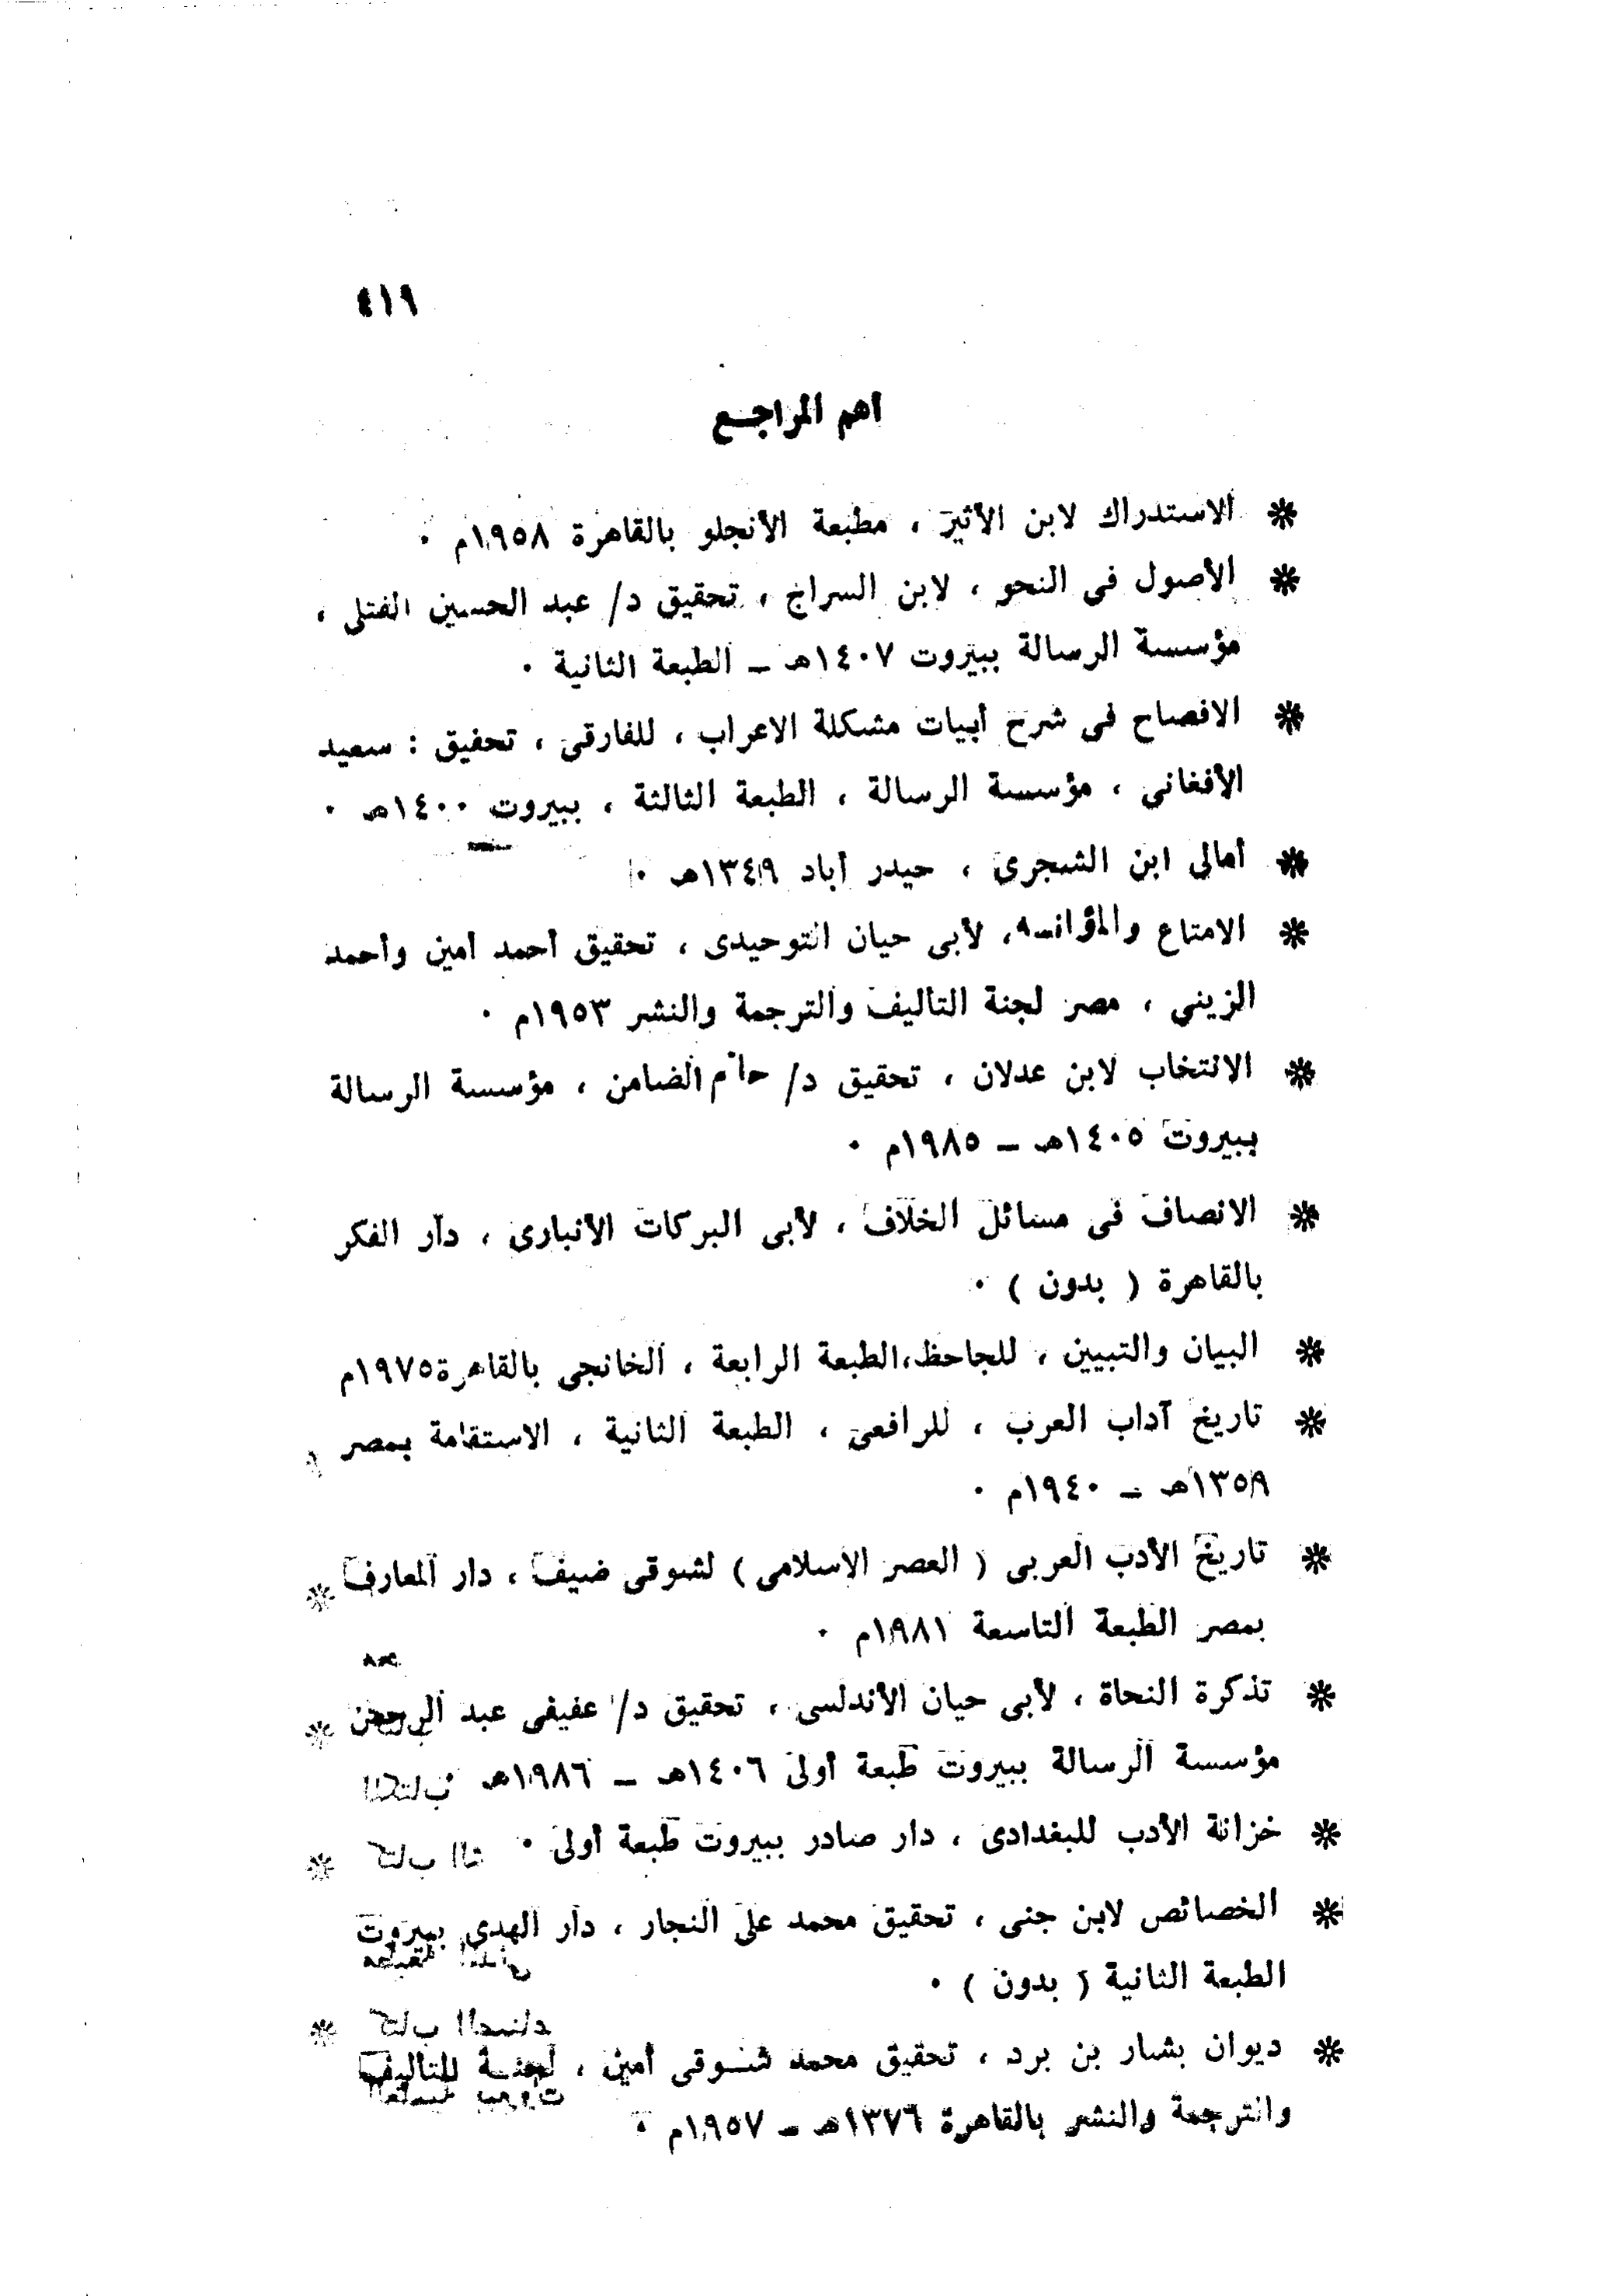 ٤١٩
أهم المراجـع
* الاستدراك لابن الأثير ، مطبعة الأنجلو بالقاهرة ١٩٥٨م ٠
* الأصول فى النحو ، لابن السراج ، تحقيق د/ عبد الحسين الفتلى ،
مؤسسة الرسالة ببيروت ١٤٠٧هـ ــ الطبعة الثانية ٠
* الافصاح فى شرح أبيات مشكلة الاعراب ، للفارقى ، تحقيق : سعيد
الأفغانى ، مؤسسة الرسالة ، الطبعة الثالثة ، ببيروت ١٤٠٠هـ ٠
* أمالى ابن الشجرى ، حيدر أباد ١٣٤٩هـ ٠
* الامتاع والمؤانسه، لأبى حيان التوحيدى ، تحقيق أحمد أمين وأحمد
الزينى ، مصر لجنة التأليف والترجمة والنشر ١٩٥٣م ٠
* الانتخاب لابن عدلان ، تحقيق د/ حاتم الضامن ، مؤسسة الرسالة
ببيروت ١٤٠٥هـ ــ ١٩٨٥م ٠
* الانصاف فى مسائل الخلاف ، لأبى البركات الأنبارى ، دار الفكر
بالقاهرة ( بدون ) ٠
* البيان والتبيين ، للجاحظ،الطبعة الرابعة ، الخانجى بالقاهرة١٩٧٥م
* تاريخ آداب العرب ، للرافعى ، الطبعة الثانية ، الاستقامة بمصر
١٣٥٩هـ ــ ١٩٤٠م ٠
* تاريخ الأدب العربى ( العصر الاسلامى ) لشوقى ضيف ، دار المعارف
بمصر الطبعة التاسعة ١٩٨١م ٠
* تذكرة النحاة ، لأبى حيان الأندلسى ، تحقيق د/ عفيفى عبد الرحمن
مؤسسة الرسالة ببيروت طبعة أولى ١٤٠٦هـ ــ ١٩٨٦هـ
* خزانة الأدب للبغدادى ، دار صادر ببيروت طبعة أولى ٠
* الخصائص لابن جنى ، تحقيق محمد على النجار ، دار الهدى ببيروت
الطبعة الثانية ( بدون ) ٠
* ديوان بشار بن برد ، تحقيق محمد شـوقى أمين ، لجنـة للتأليف
والترجمة والنشر بالقاهرة ١٣٧٦هـ ــ ١٩٥٧م ٠